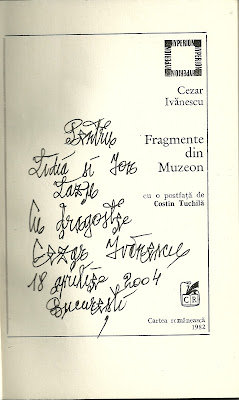 HYPERION
HYPERION
HYPERION
HYPERION
Cezar
Ivănescu
Fragmente
din
Muzeon
cu o postfață de
Costin Tuchilă
Pentru
Lidia și Ion
Lazu
Cu dragoste
Cezar Ivănescu
18 aprilie 2004
București
CR
Cartea românească
1982